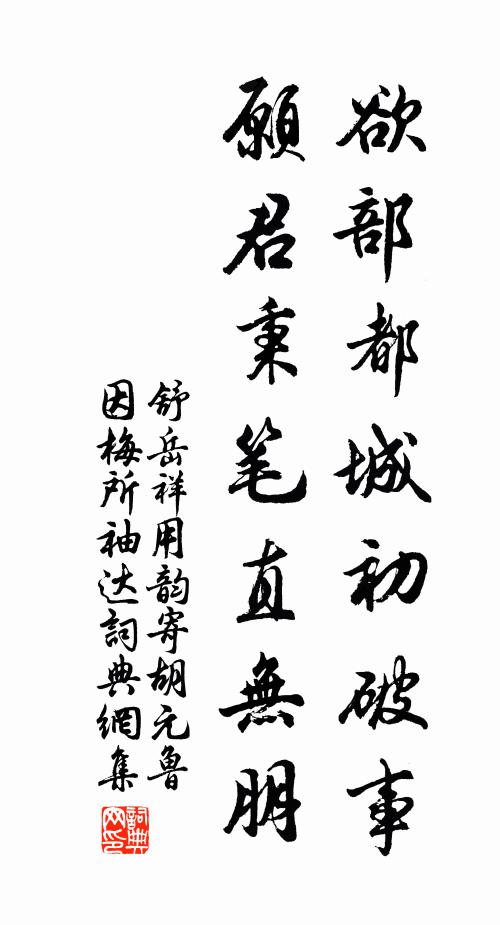 欲部都城初破事
願君秉笔直無朋
舒岳祥用韵寄胡元魯
因梅所袖达詞典網集
詞典
网印